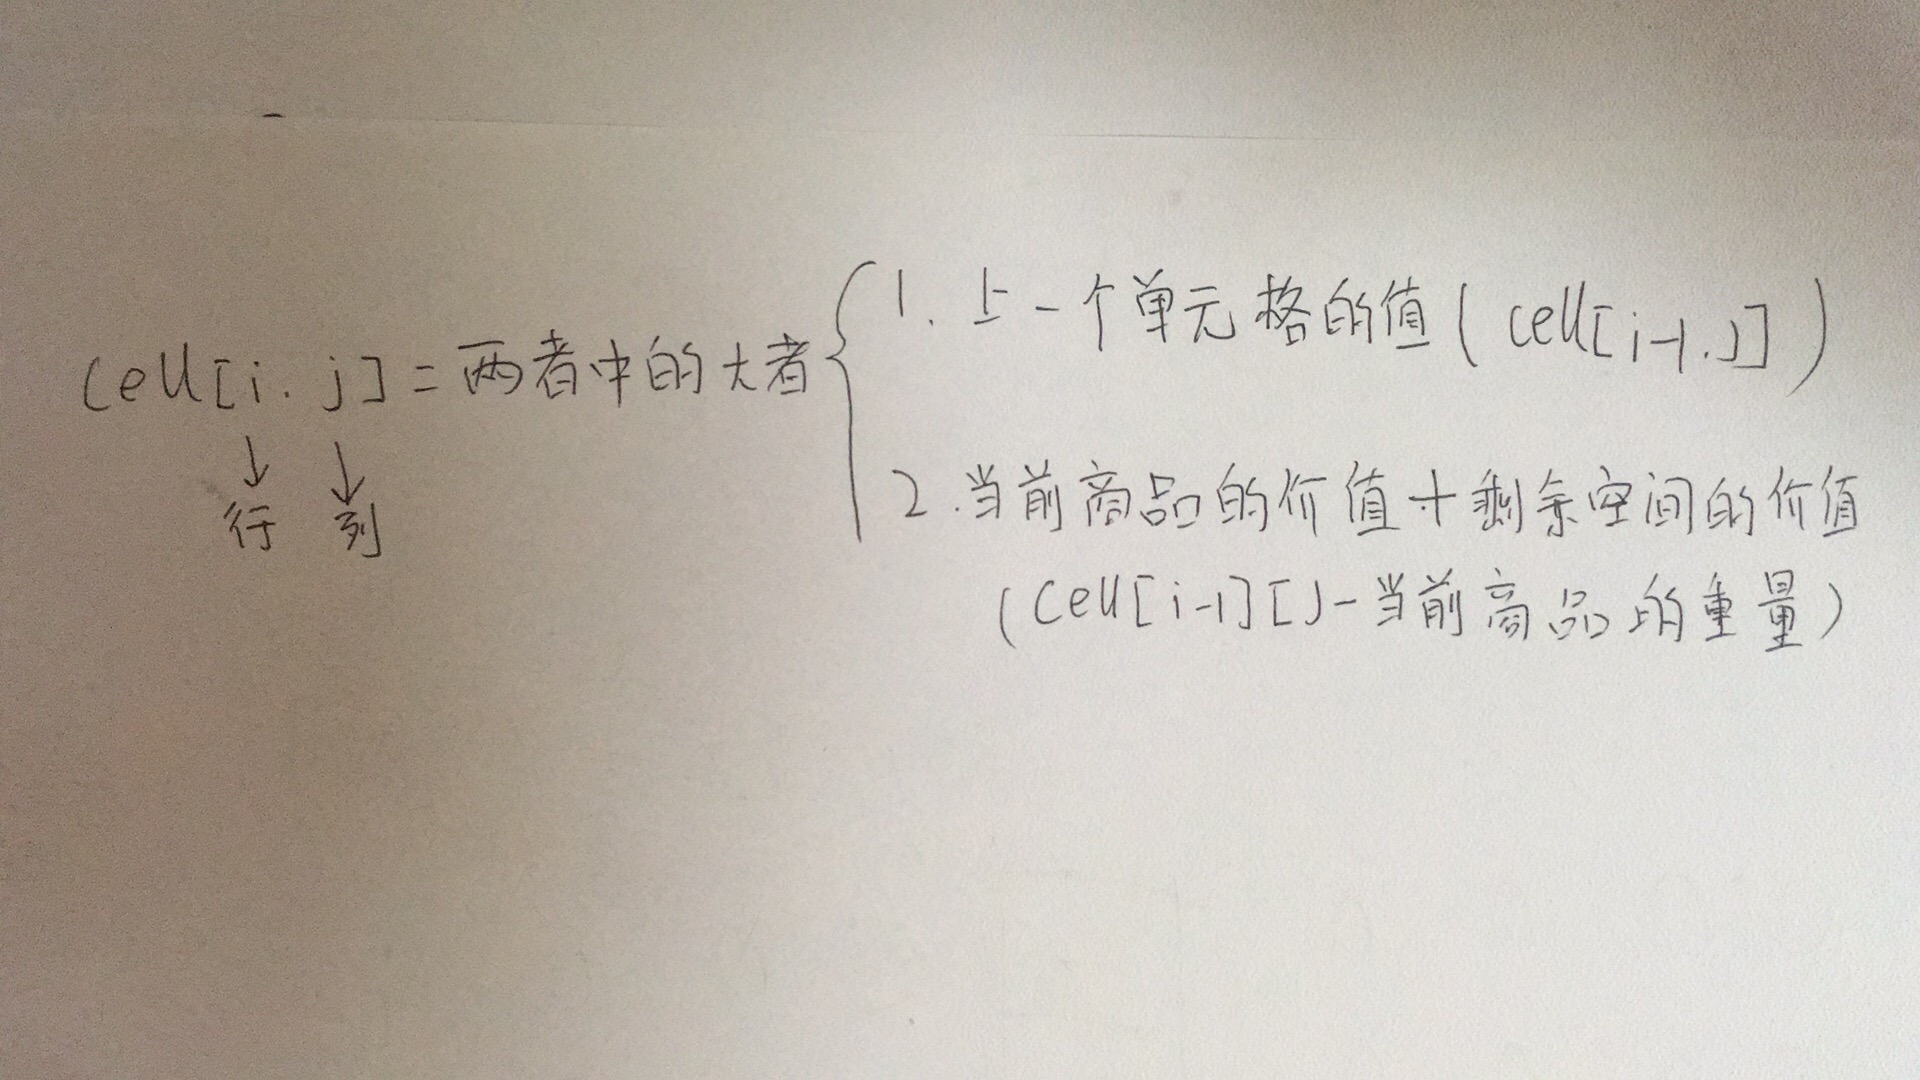 cell[i.j]=两者中的大者
↓ ↓
行 列
1.上一个单元格的值(cell[i-1.j])
2.当前商品的价值+剩余空间的价值
(cell[i-1][j-当前商品的重量)